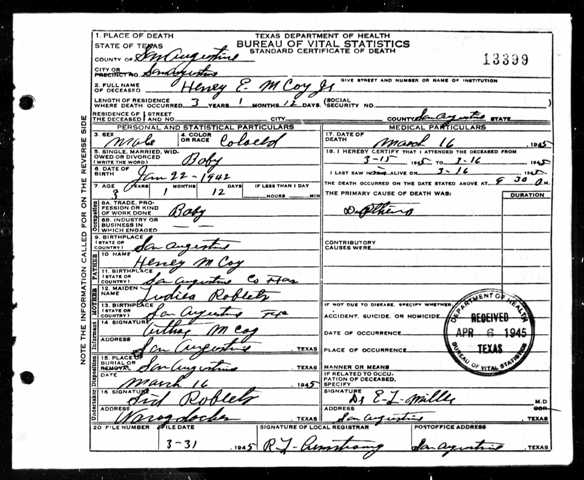 1. PLACE OF DEATH
STATE OF TEXAS
TEXAS DEPARTMENT OF HEALTH
BUREAU OF VITAL STATISTICS
STANDARD CERTIFICATE OF DEATH
13399
COUNTY OF San Augustine
CITY OR PRECINCT NO. San Augustine
GIVE STREET AND NUMBER OR NAME OF INSTITUTION
2. FULL NAME OF DECEASED Henry E. McCoy Jr
LENGTH OF RESIDENCE WHERE DEATH OCCURRED 3 YEARS 1 MONTHS 12 DAYS (SOCIAL SECURITY NO.
RESIDENCE OF THE DECEASED STREET AND NO. CITY COUNTY San Augustine STATE
PERSONAL AND STATISTICAL PARTICULARS
3. SEX Male
4. COLOR OR RACE Colored
5. SINGLE, MARRIED, WIDOWED OR DIVORCED (WRITE THE WORD) Baby
6. DATE OF BIRTH Jan 22-1942
7. AGE 3 YEARS 1 MONTHS 12 DAYS IF LESS THAN 1 DAY HOURS MIN
8A. TRADE, PROFESSION OR KIND OF WORK DONE Baby
8B. INDUSTRY OR BUSINESS IN WHICH ENGAGED
9. BIRTHPLACE (STATE OR COUNTRY) San Augustine
10. NAME Henry McCoy
11. BIRTHPLACE (STATE OR COUNTRY) San Augustine Co
12. MAIDEN NAME Roblets
13. BIRTHPLACE (STATE OR COUNTRY) San Augustine
14. SIGNATURE McCoy
ADDRESS San Augustine TEXAS
15. PLACE OF BURIAL OR REMOVAL San Augustine TEXAS
DATE March 16 1945
16. SIGNATURE Sid Roblets
ADDRESS TEXAS
MEDICAL PARTICULARS
17. DATE OF DEATH March 16 1945
18. I HEREBY CERTIFY THAT I ATTENDED THE DECEASED FROM
3-15 1945 TO 3-16 1945
I LAST SAW ALIVE ON 3-16 1945
THE DEATH OCCURRED ON THE DATE STATED ABOVE AT 9 30
THE PRIMARY CAUSE OF DEATH WAS:
DURATION
CONTRIBUTORY CAUSES WERE:
IF NOT DUE TO DISEASE, SPECIFY WHETHER
ACCIDENT, SUICIDE, OR HOMICIDE
DATE OF OCCURRENCE
PLACE OF OCCURRENCE
MANNER OR MEANS
IF RELATED TO OCCUPATION OF DECEASED, SPECIFY
SIGNATURE Dr E-L- Miller M.D
ADDRESS San Augustine TEXAS
DEPARTMENT OF HEALTH
RECEIVED
APR 6 1945
TEXAS
BUREAU OF VITAL STATISTICS
20 FILE NUMBER
FILE DATE 3-31 1945
SIGNATURE OF LOCAL REGISTRAR R L Armstrong
POSTOFFICE ADDRESS San Augustine, TEXAS
NOTE THE INFORMATION CALLED FOR ON THE REVERSE SIDE
Occupation
FATHER
MOTHER
Informant
Undertaker Disposition